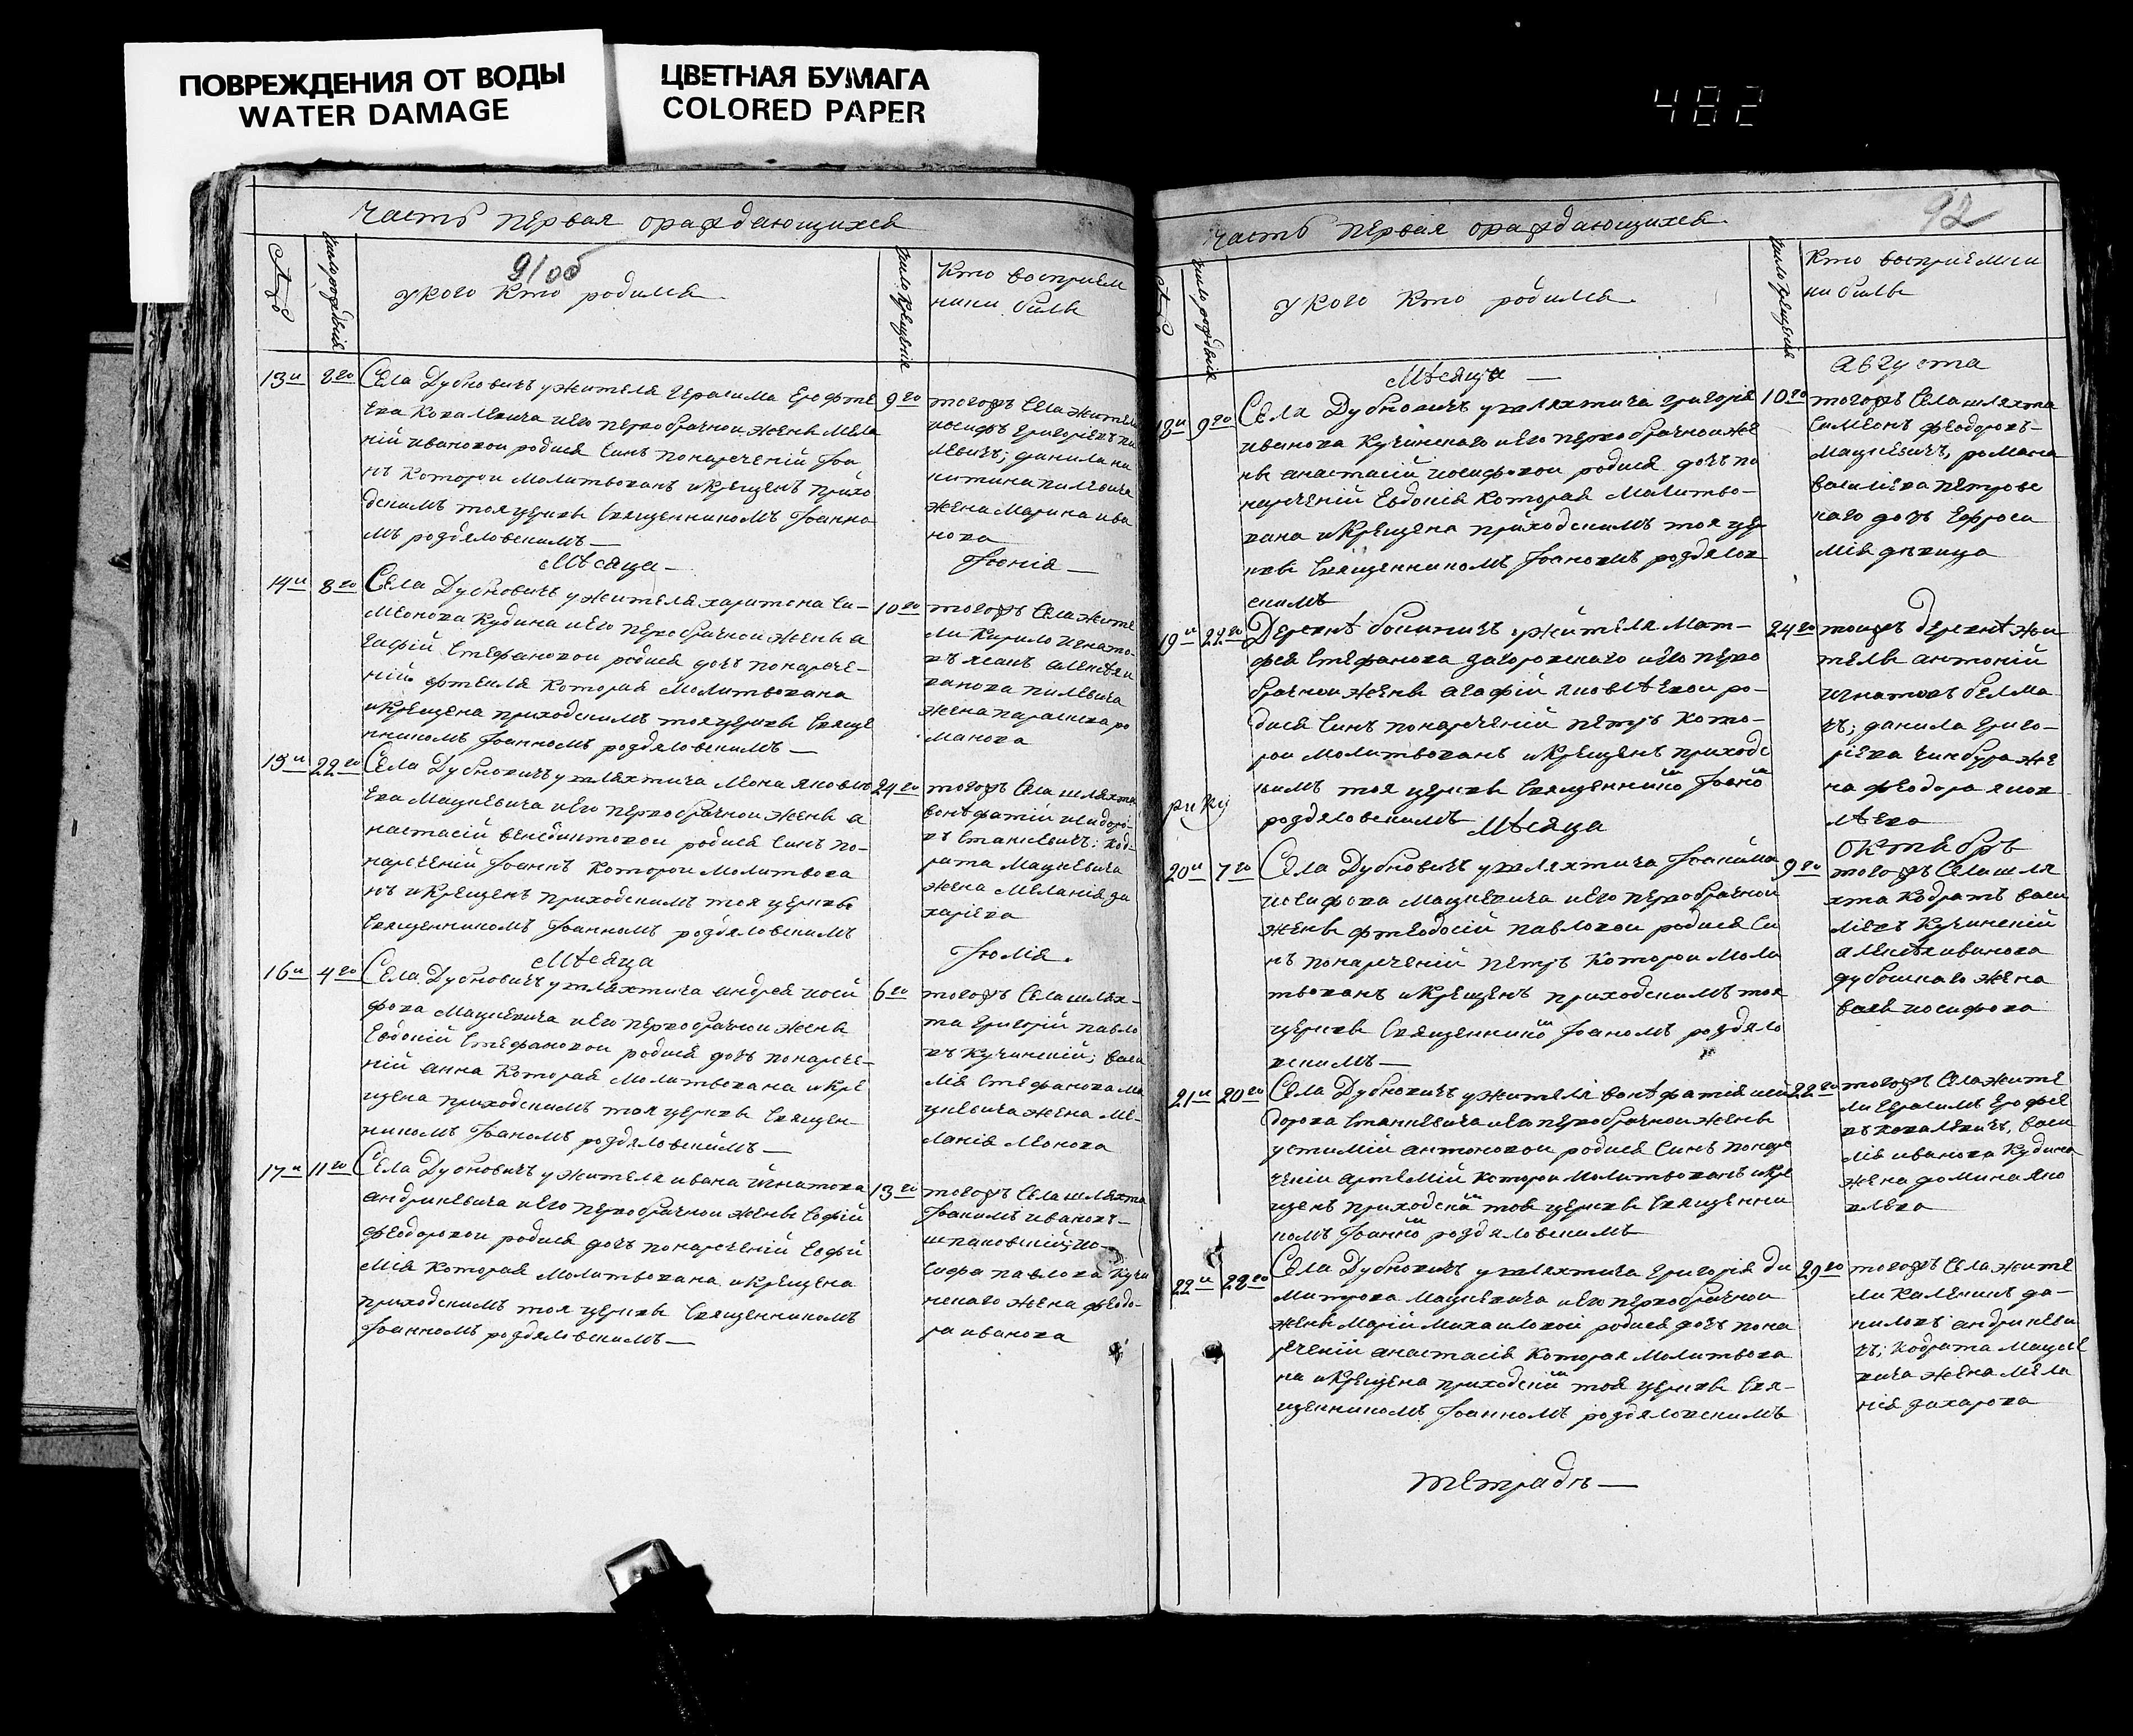 ПОВРЕЖДЕНИЯ ОТ ВОДЫ
WATER DAMAGE
ЦВЕТНАЯ БУМАГА
COLORED PAPER
482
часть первая ораждающихся
91 об
число рождения
у кого кто родился
число крещения
кто восприем
ники были
13и 8го Села Дубновичъ у жителя Герасима Ерофѣе
ева Ковалевича и его первобрачной жены Мела
ніи Ивановой родися сынъ нареченій Іоа
нъ которой молитвованъ и крещенъ прихо
дскимъ тоя церкви священникомъ Іоанно
мъ роздяловскимъ
9го тогожъ села жители
иосифъ григоріевъ пи
левичъ; данила ни
китина пилевича
жена марина ива
нова
Мѣсяца
Іюнія
14и 8го Села Дубновичъ у жителя харитона си
меонова Кудина и его первобрачной жены а
гафіи стефановой родися дочь понарече
ній фтекля которая молитвована
и крещена приходскимъ тоя церкви свяще
нникомъ Іоанномъ роздяловскимъ
10го тогожъ села жите
ли Кирило игнато
въ ясанъ алексѣя и
ванова пилевича
жена параскева ро
манова
15и 22го Села Дубновичъ у шляхтича леона яковл
ева Мацкевича и его первобрачной жены а
настасіи венедиктовой родися сынъ по
нареченій Іоаннъ которой молитвова
нъ и крещенъ приходскимъ тоя церкви
священникомъ Іоанномъ роздяловскимъ
24го тогожъ села шляхта
вонѣфатій исидоро
въ станкевичъ; код
рата мацкевича
жена меланія за
харіева
Мѣсяца
Іюлія
16и 4го Села Дубновичъ у шляхтича андрея иоси
фова мацкевича и его первобрачной жены
евдокіи стефановой родися дочь понарече
ній анна которая молитвована и кре
щена приходскимъ тоя церкви священ
никомъ Іоаномъ роздяловскимъ
6го тогожъ села шлях
та григорій павло
въ кучинскій; васи
лія стефанова ма
цкевича жена ме
ланія леонова
17и 11го Села Дубновичъ у жителя ивана игнатова
андрикевича и его первобрачной жены софіи
феодоровой родися дочь понареченій евфи
мія которая молитвована и крещена
приходскимъ тоя церкви священникомъ
Іоанномъ роздяловскимъ
13го тогожъ села шляхта
Іоакимъ ивановъ
шпаковскій; ио
сифа павлова кучи
нскаго жена феодо
ра иванова
92
часть первая ораждающихся
число рождения
у кого кто родился
число крещения
кто восприемни
ки были
Мѣсяца
Августа
18и 9го Села Дубновичъ у шляхтича григорія
иванова Кучинскаго и его первобрачной же
ны анастасіи иосифовой родися дочь по
нареченій Евдокія которая молитво
вана и крещена приходскимъ тоя цер
кви священникомъ Іоаномъ роздялов
скимъ
10го тогожъ села шляхта
симеонъ феодоровъ
мацкевичъ, романа
василіева петровс
каго дочь ефроси
нія дѣвица
19и 22го Деревнѣ боинич у жителя мат
фея стефанова загоровскаго и его перво
брачной жены агафіи яковлѣвой ро
дися сынъ понареченій петръ кото
рой молитвованъ и крещенъ приходс
кимъ тоя церкви священнико Іоано
роздяловскимъ
24го тоижъ деревнѣ жи
тели антоній
игнатовъ белма
чъ; данила григо
ріева чинбура же
на феодора яков
лѣва
Мѣсяца
Октябръ
20и 7го Села Дубновичъ у шляхтича Іоакима
иосифова мацкевича и его первобрачной
жены фтеодосіи павловой родися сы
нъ понареченій петръ которой моли
твованъ и крещенъ приходскимъ тоя
церкви священнико Іоаномъ роздяло
вскимъ
9го тогожъ села шля
хта кодратъ васи
лѣвъ кучинскій
алексѣя иванова
дубоинаго жена
вася иосифова
21и 20го Села Дубновичъ у жителя вонѣфатія иси
дорова станкевича и его первобрачной жены
устиміи антоновой родися сынъ понаре
ченіи артемій которой молитвованъ и кре
щенъ приходски тоя церкви священни
комъ Іоанно роздяловскимъ
22го тогожъ села жите
ли герасимъ ерофѣе
въ ковалевичъ, васи
лія иванова Кудина
жена домина яко
влева
22и 28го Села Дубновичъ у шляхтича григорія ди
митрова мацкевича и его первобрачной
жены маріи михаиловой родися дочь пона
реченій анастасія которая молитвова
на и крещена приходски тоя церкви свя
щенникомъ Іоанномъ роздяловскимъ
29го тогожъ села жите
ли каленикъ да
ниловъ андрикеви
чъ; кодрата мацке
вича жена мела
нія захарова
тетрадь